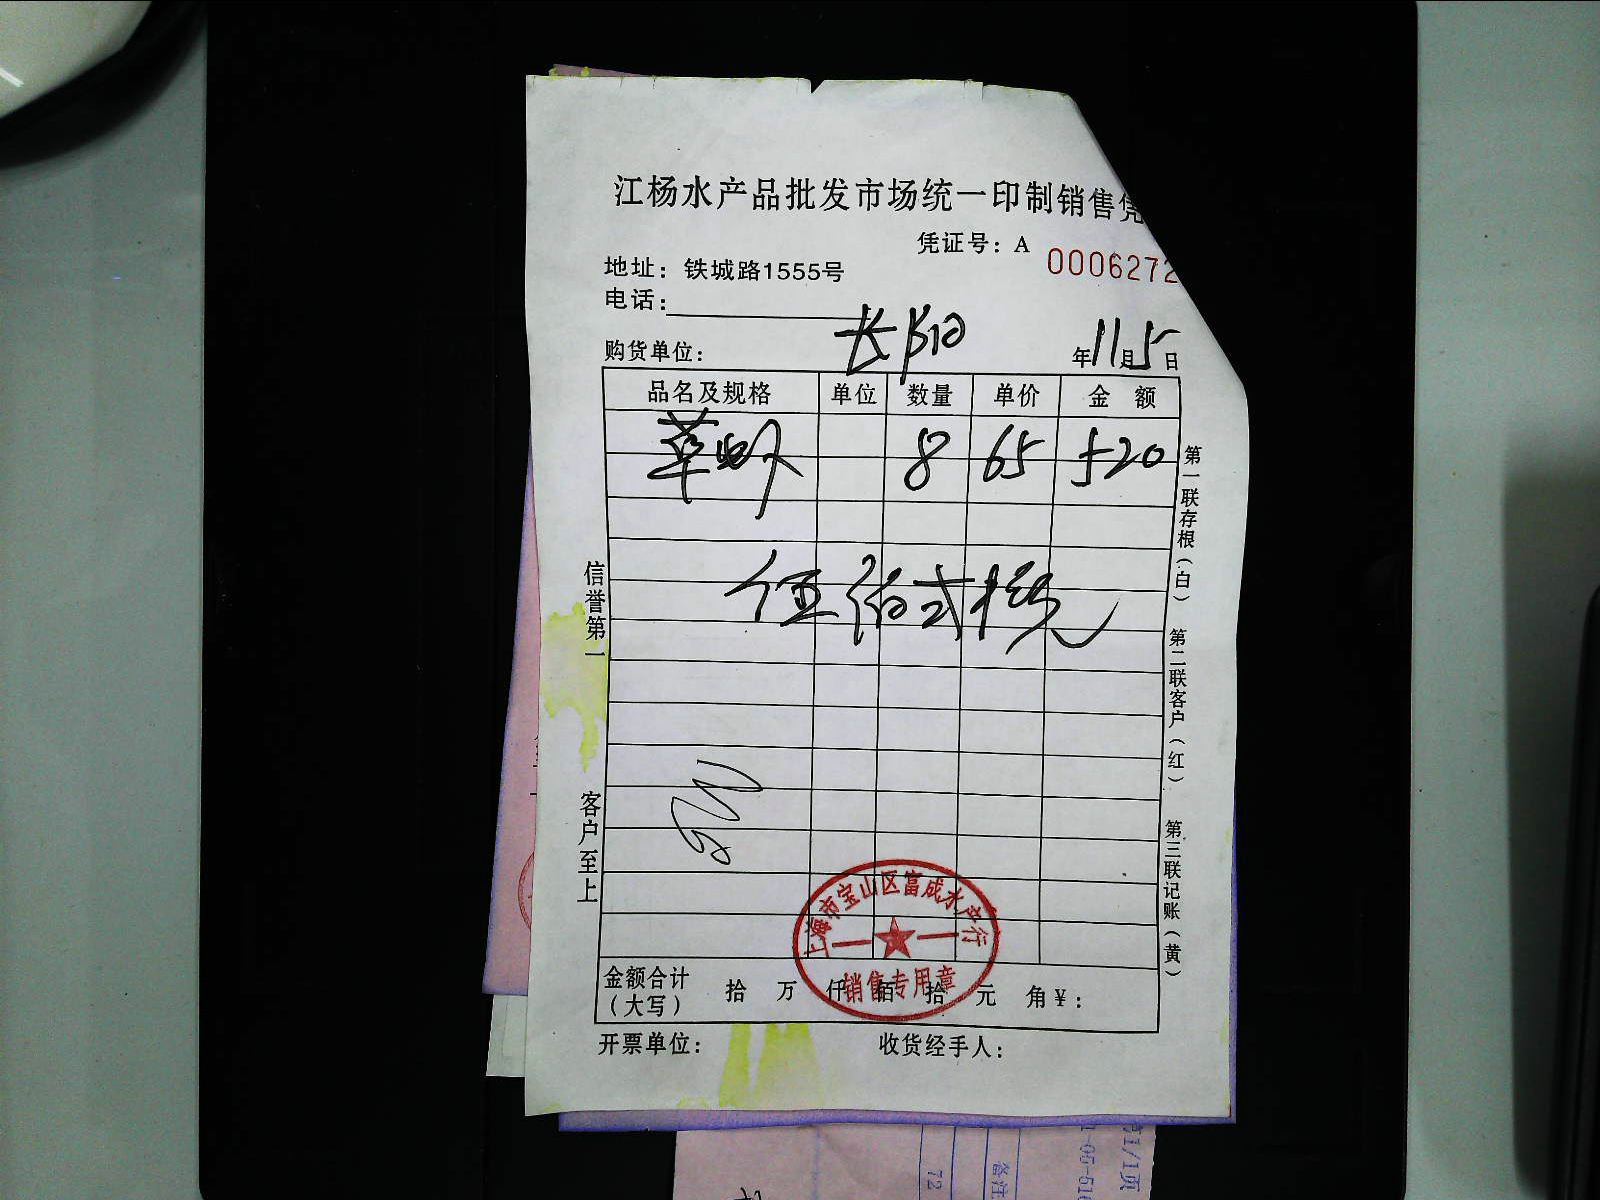 江杨水产品批发市场统一印制销售凭
凭证号：A 0006272
地址：铁城路1555号
电话：
长阳
购货单位： 年11月5日
品名及规格 单位 数量 单价 金额
草虾 8 65 520
伍佰弍拾元
信誉第一
客户至上
第一联存根（白）
第二联客户（红）
第三联记账（黄）
上海市宝山区富成水产行
销售专用章
金额合计（大写） 拾 万 仟 佰 拾 元 角 ¥：
开票单位： 收货经手人：
72
备注